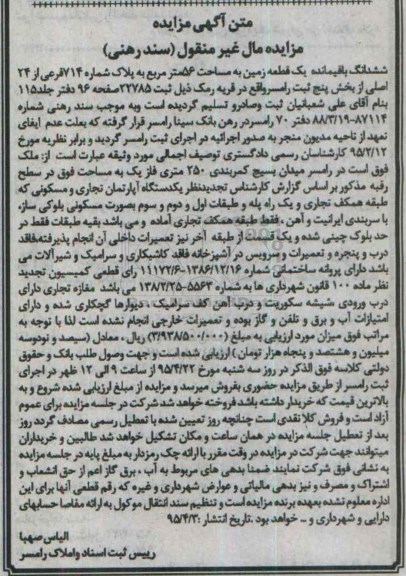 متن آگهی مزایده
مزایده مال غیر منقول (سند رهنی)
ششدانگ باقیمانده یک قطعه زمین به مساحت ۵۶متر مربع به پلاک شماره ۷۱۴فرعی از ۲۴
اصلی از بخش پنج ثبت رامسرواقع در قریه رمک ذیل ثبت ۲۲۷۸۵صفحه ۹۶ دفتر جلد۱۱۵
بنام آقای علی شعبانیان ثبت وصادرو تسلیم گردیده است وبه موجب سند رهنی شماره
۸۷۱۱۴-۸۸/۳/۱۹ دفتر ۷۰ رامسردر رهن بانک سینا رامسر قرار گرفته که بعلت عدم ایفای
تعهد از ناحیه مدیون منجر به صدور اجرائیه در اجرای ثبت رامسر گردید و برابر نظریه مورخ
۹۵/۲/۱۲ کارشناسان رسمی دادگستری توصیف اجمالی مورد وثیقه عبارت است از: ملک
فوق است در رامسر میدان بسیج کمربندی ۲۵۰ متری فاز یک به مساحت فوق در سطح
رقبه مذکور بر اساس گزارش کارشناس تجدیدنظر یکدستگاه آپارتمان تجاری و مسکونی که
طبقه همکف تجاری و یک راه پله و طبقات اول و دوم و سوم بصورت مسکونی بلوکی ساز،
با سربندی ایرانیت و آهن ، فقط طبقه همکف تجاری آماده و می باشد بقیه طبقات فقط در
حد بلوک چینی شده و یک قسمت از طبقه آخر نیز تعمیرات داخلی آن انجام پذیرفته،فاقد
درب و پنجره و تعمیرات و سرویس در آشپزخانه فاقد کاشیکاری و سرامیک و شیرآلات می
باشد دارای پروانه ساختمانی شماره ۱۳۸۶/۱۲/۱۶-۱۱۱۷۲/۶ رای قطعی کمیسیون تجدید
نظر ماده ۱۰۰ قانون شهرداری ها به شماره ۵۵۶۳-۱۳۸۷/۲/۲۵ می باشد مغازه تجاری دارای
درب ورودی شیشه سکوریت و درب آهن کف سرامیک ، دیوارها گچکاری شده و دارای
امتیازات آب و برق و تلفن و گاز بوده و تعمیرات خارجی انجام نشده است لذا با توجه به
مراتب فوق میزان مورد ارزیابی به مبلغ (۳/۹۳۸/۵۰۰/۰۰۰) ریال ، معادل (سیصد و نودوسه
میلیون و هشتصد و پنجاه هزار تومان ) ارزیابی شده است و جهت وصول طلب بانک و حقوق
دولتی کلاسه فوق الذکر در روز سه شنبه مورخ ۹۵/۴/۲۲ از ساعت ۹ الی ۱۲ ظهر در اجرای
ثبت رامسر از طریق مزایده حضوری بفروش میرسد و مزایده از مبلغ ارزیابی شده شروع و به
بالاترین قیمت که خریدار داشته باشد فروخته خواهد شد شرکت در جلسه مزایده برای عموم
آزاد است و فروش کلا نقدی است چنانچه روز تعیین شده با تعطیل رسمی مصادف گردد روز
بعد از تعطیل جلسه مزایده در همان ساعت و مکان تشکیل خواهد شد طالبین و خریداران
میتوانند جهت شرکت در مزایده در وقت مقرر با ارائه چک رمزدار به مبلغ پایه در جلسه مزایده
به نشانی فوق شرکت نمایند ضمنا بدهی های مربوط به آب ، برق گاز اعم از حق انشعاب و
اشتراک و مصرف و نیز بدهی مالیاتی و عوارض شهرداری و غیره که رقم قطعی آنها برای این
اداره معلوم نشده بعهده برنده مزایده است و تنظیم سند انتقال موکول به ارائه مفاصا حسابهای
دارایی و شهرداری و ... خواهد بود .تاریخ انتشار :۹۵/۴/۳
الیاس صهبا
رییس ثبت اسناد واملاک رامسر